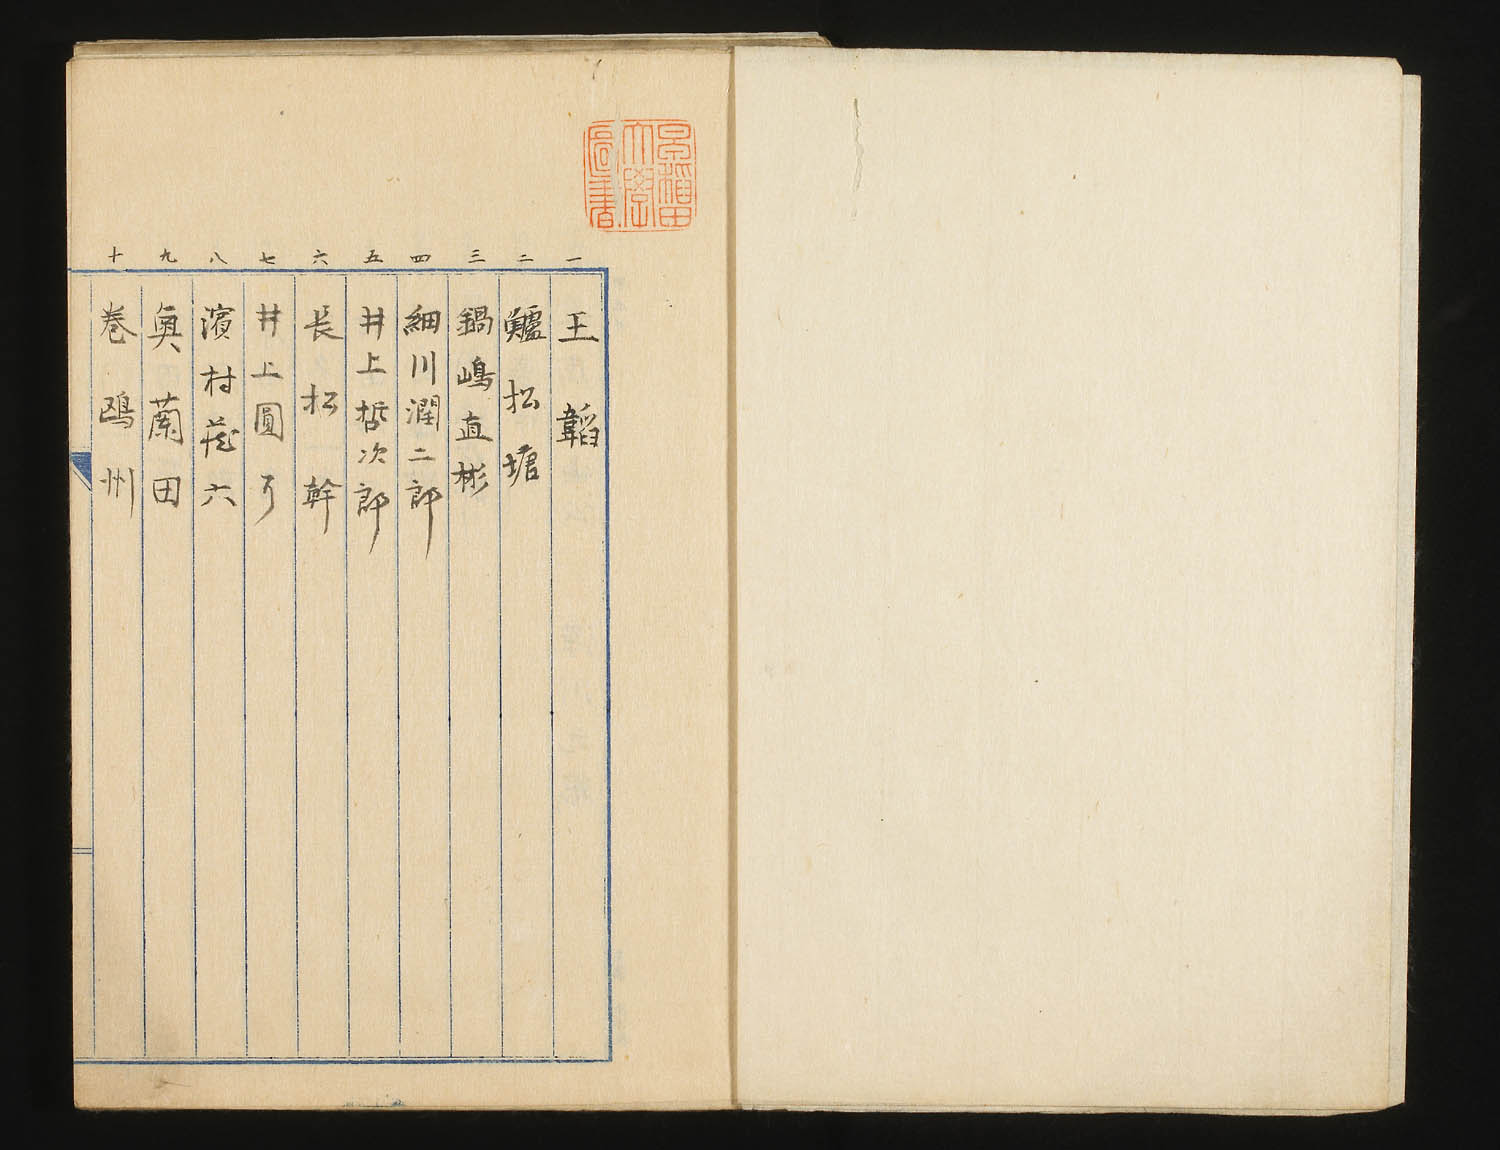 早稲田
大學
圖書
一 王韜
二 鱸松塘
三 鍋嶋直彬
四 細川潤二郎
五 井上哲次郎
六 長松幹
七 井上圓了
八 濱村蔵六
九 奥蘭田
十 巻鴎州